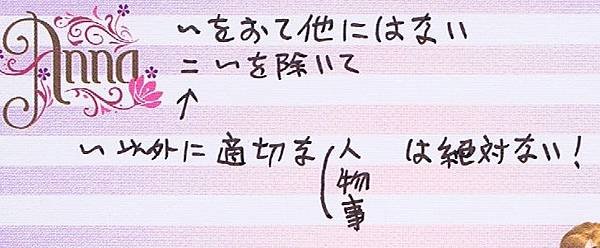 Anna
～をおいて他にはない
＝～を除いて
↑
～以外に適切な(人 は絶対ない！
物
事